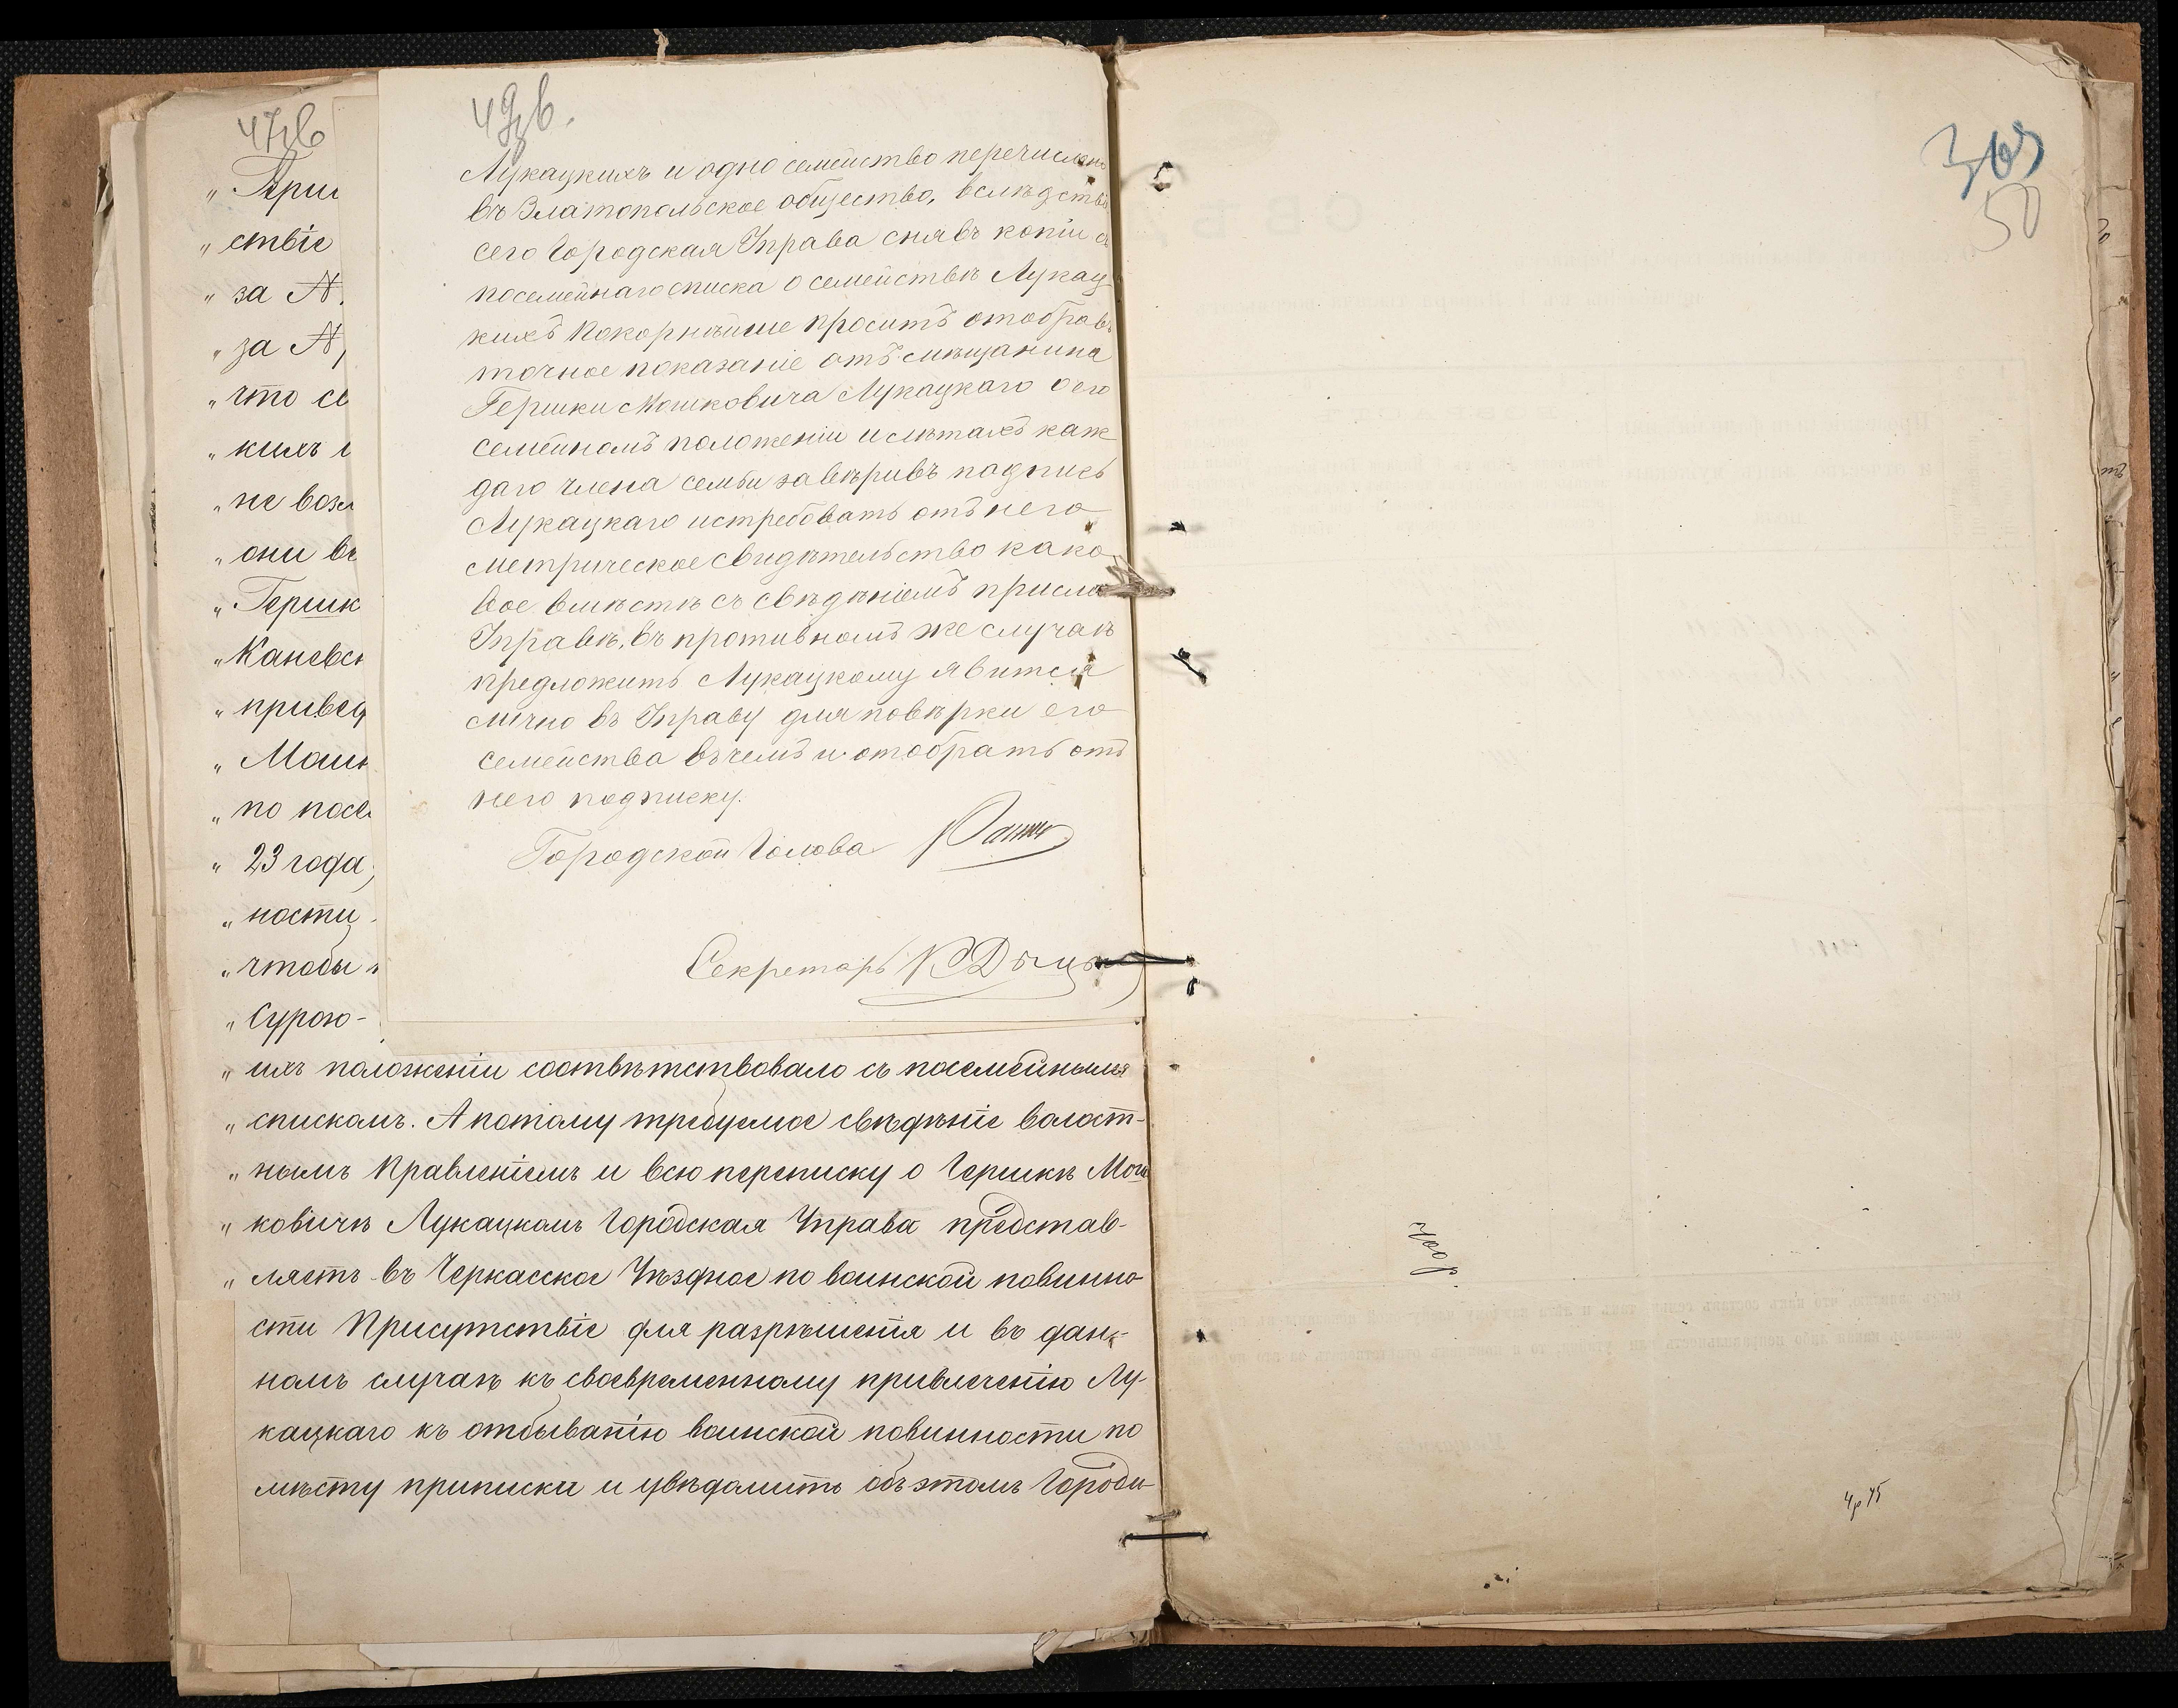 49зв.
Лукацкихъ и одно семейство перечислено
въ Златопольское общество, вслѣдствіе
сего Городская Управа снявъ копіи съ
посемейнаго списка о семействѣ Лукац-
кихъ покорнѣйше проситъ отобравъ
точное показаніе отъ мѣщанина
Гершки Мошковича Лукацкаго о его
семейномъ положеніи и лѣтахъ каж
даго члена семьи завѣривъ подпись
Лукацкаго истребовать отъ него
метрическое свидѣтельство како
вое вмѣстѣ съ свѣдѣніемъ присла
Управѣ, въ противномъ же случаѣ
предложить Лукацкому явится
лично въ Управу для повѣрки его
семейства въ чемъ и отобрать отъ
него подписку.
Городской Голова
Секретарь
47зв
„ Герш
„ ствіе
„ за №
„ за №
„ что се
„ кихъ
„ не воз
„ они въ
„ Гершк
„ Каневск
„ привед
„ Мошк
„ по посе
„ 23 года,
„ ности
„ чтобы
„ Сурою-
„ ихъ положеніи соотвѣтствовало съ посемейнымъ
„ спискомъ. А потому требуемое свѣдѣніе волост-
„ нымъ Правленіемъ и всю переписку о Гершкѣ Мош
„ ковичѣ Лукацкомъ Городская Управа представ-
„ ляетъ въ Черкасское Уѣздное по воинской повинно-
сти Присутствіе для разрѣшенія и въ дан-
номъ случаѣ къ своевременному привлеченію Лу-
кацкаго къ отбыванію воинской повинности по
мѣсту приписки и увѣдомить объ этомъ Городи-
50